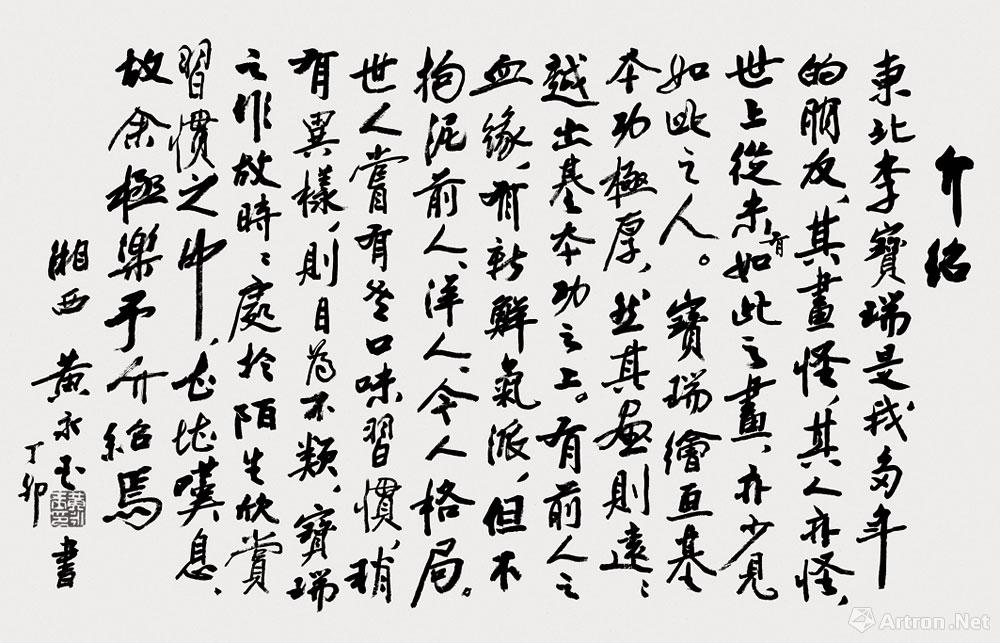 介紹
東北李寶瑞是我多年
的朋友,其畫怪,其人亦怪,
世上從未有如此之畫,亦少見
如此之人。寶瑞繪画基
本功極厚,然其画則遠遠
越出基本功之上。有前人之
血緣,有新鮮氣派,但不
拘泥前人、洋人、今人格局。
世人嘗有吃口味習慣,稍
有異樣,則目為不類,寶瑞
之作故時時處於陌生欣賞
習慣之中,
嘆息,
故余極樂予介紹焉
湘西 黃永玉 書
丁卯
Artron.Net